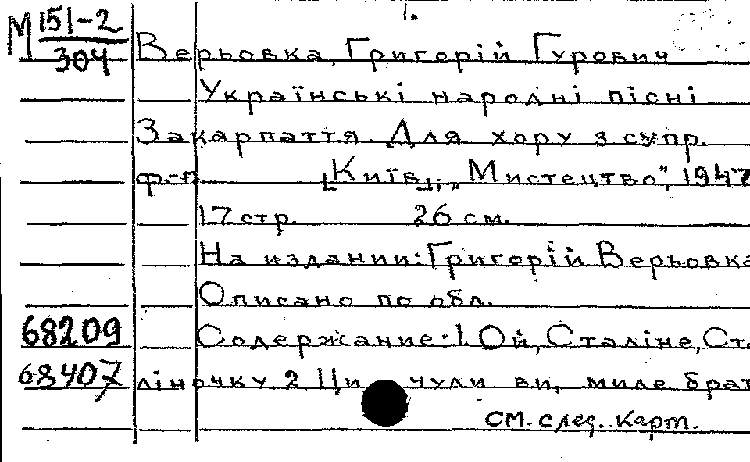 1.
М 151-2
304
Верьовка, Григорій Гурович
Українські народні пісні
Закарпаття. Для хору з супр.
ф.-п. [Київ], „Мистецтво", 1947
17 стр. 26 см.
На издании: Григорій Верьовка
Описано по обл.
68209 Содержание: 1. Ой, Сталіне, Ст
68407 ліночку 2 Ци чули ви, миле брат
см. след. карт.